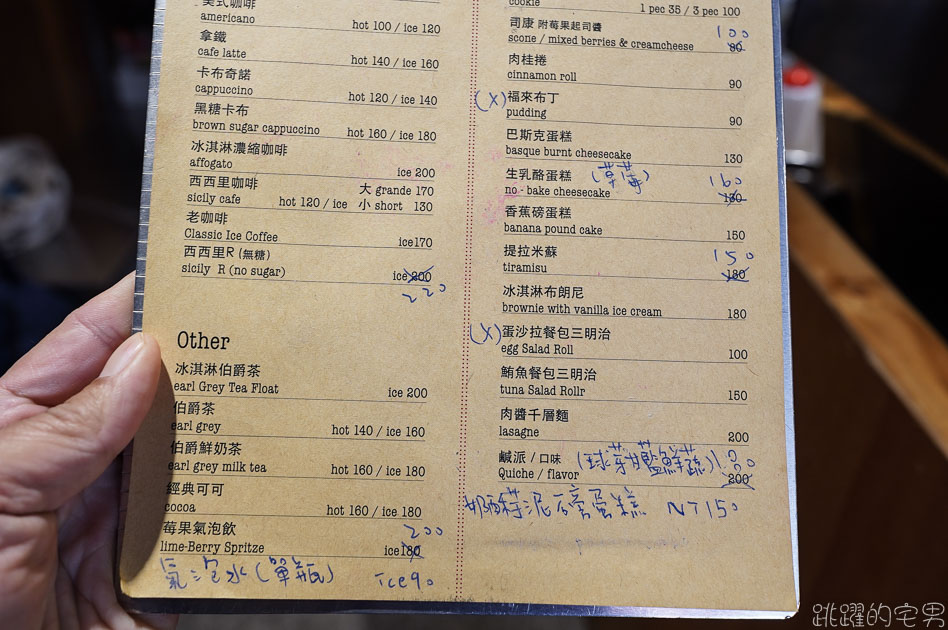 美式咖啡
americano hot 100 / ice 120
拿鐵
cafe latte hot 140 / ice 160
卡布奇諾
cappuccino hot 120 / ice 140
黑糖卡布
brown sugar cappuccino hot 160 / ice 180
冰淇淋濃縮咖啡
affogato ice 200
西西里咖啡 大 grande 170
sicily cafe hot 120 / ice 小 short 130
老咖啡
Classic Ice Coffee ice170
西西里R (無糖)
sicily R (no sugar) ice 200
220
Other
冰淇淋伯爵茶
earl Grey Tea Float ice 200
伯爵茶
earl grey hot 140 / ice 160
伯爵鮮奶茶
earl grey milk tea hot 160 / ice 180
經典可可
cocoa hot 160 / ice 180
莓果氣泡飲 200
lime-Berry Spritze ice 180
氣泡水(單瓶) Ice90
cookie 1 pec 35 / 3 pec 100
司康 附莓果起司醬 100
scone / mixed berries & creamcheese 80
肉桂捲
cinnamon roll 90
(X) 福來布丁
pudding 90
巴斯克蛋糕
basque burnt cheesecake 130
生乳酪蛋糕 160
no - bake cheesecake 130
香蕉磅蛋糕
banana pound cake 150
提拉米蘇 150
tiramisu 180
冰淇淋布朗尼
brownie with vanilla ice cream 180
(X) 蛋沙拉餐包三明治
egg Salad Roll 100
鮪魚餐包三明治
tuna Salad Rollr 150
肉醬千層麵
lasagne 200
鹹派 / 口味 (球芽甘藍鮮蔬) 180
Quiche / flavor 200
泥磅蛋糕 NT150
跳躍的宅男